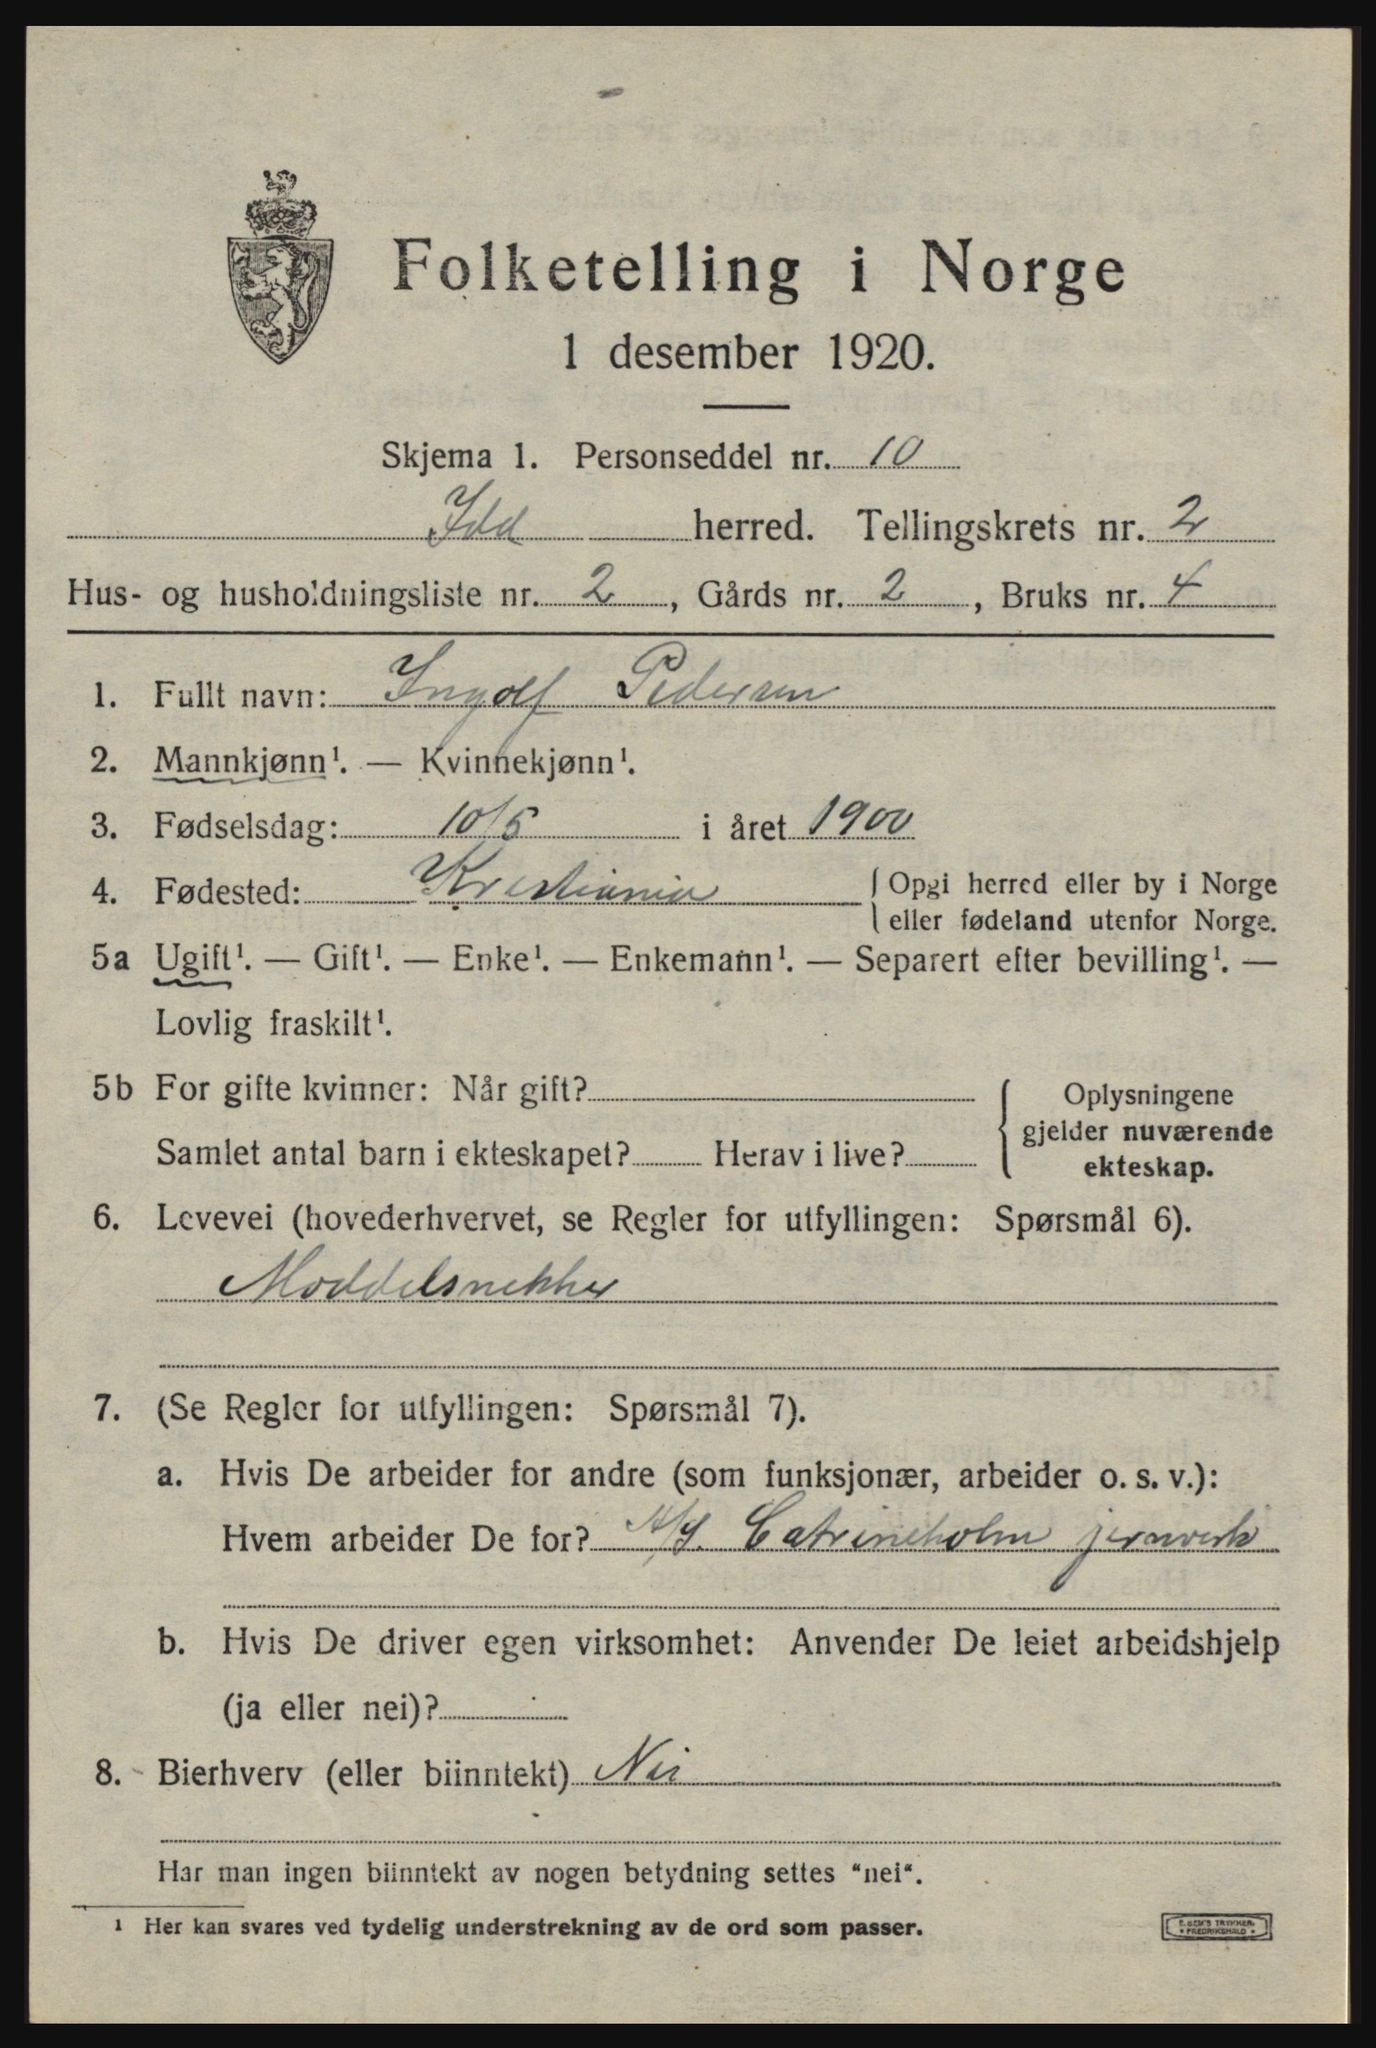 Folketelling i Norge
1 desember 1920.
Skjema 1. Personseddel nr. 10
Idd herred. Tellingskrets nr. 2
Hus- og husholdningsliste nr. 2, Gårds nr. 2, Bruks nr. 4
1. Fullt navn: Ingolf Pedersen
2. Mannkjønn¹. — Kvinnekjønn¹.
3. Fødselsdag: 10/5 i året 1900
4. Fødested: Kristiania { Opgi herred eller by i Norge
eller fødeland utenfor Norge.
5a Ugift¹. — Gift¹. — Enke¹. — Enkemann¹. — Separert efter bevilling¹. —
Lovlig fraskilt¹.
5b For gifte kvinner: Når gift?
Samlet antal barn i ekteskapet? Herav i live?
{ Oplysningene
gjelder nuværende
ekteskap.
6. Levevei (hovederhvervet, se Regler for utfyllingen: Spørsmål 6).
Moddelsnekker
7. (Se Regler for utfyllingen: Spørsmål 7).
a. Hvis De arbeider for andre (som funksjonær, arbeider o. s. v.):
Hvem arbeider De for? A/S. Catrineholm jernverk
b. Hvis De driver egen virksomhet: Anvender De leiet arbeidshjelp
(ja eller nei)?
8. Bierhverv (eller biinntekt) Nei
Har man ingen biinntekt av nogen betydning settes "nei".
¹ Her kan svares ved tydelig understrekning av de ord som passer.
FREDRIKSHALD